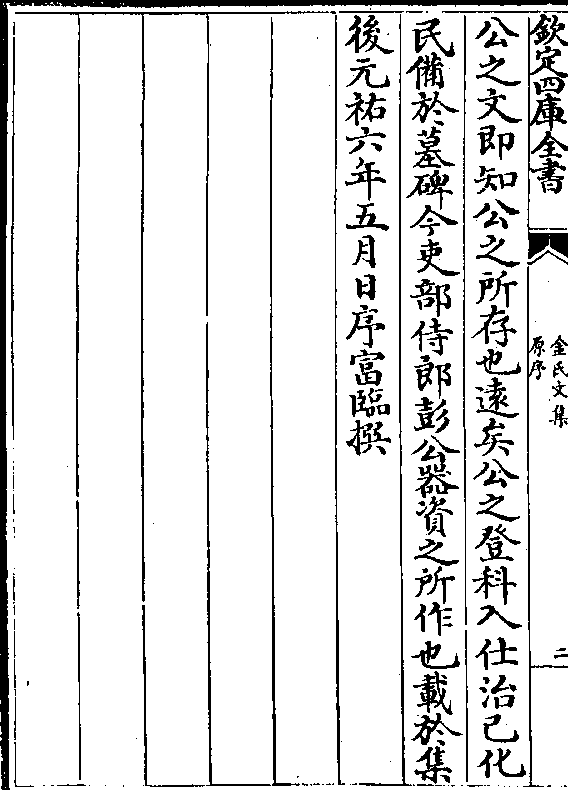 欽定四庫全書
金氏文集
原序
二
公之文即知公之所存也遠矣公之登科入仕治已化
民備於墓碑今吏部侍郎彭公器資之所作也載於集
後元祐六年五月日序富臨撰